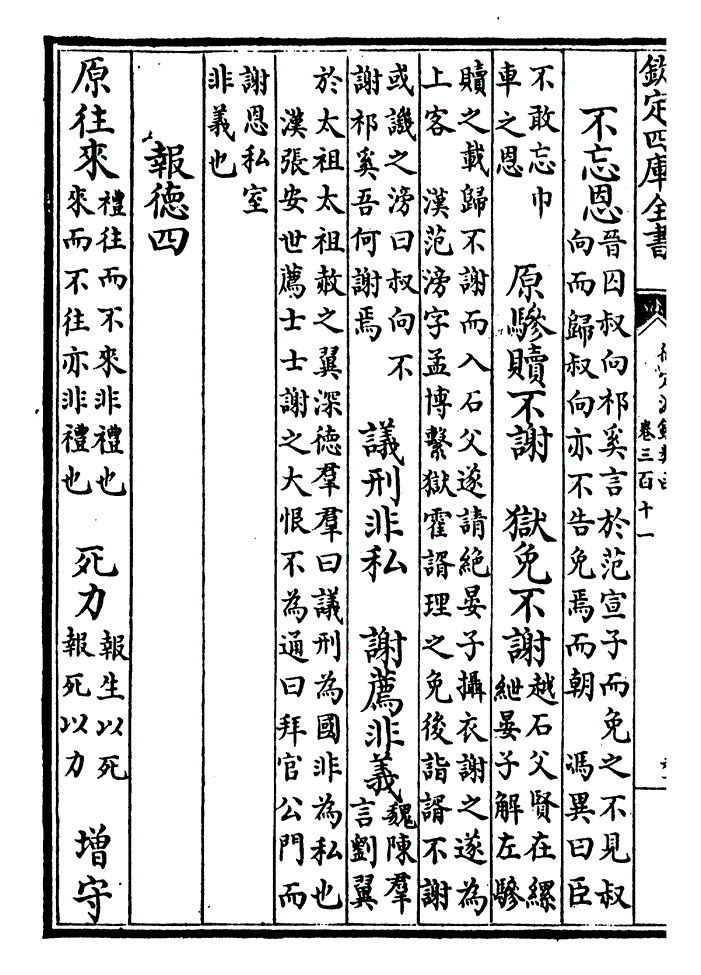 欽定四庫全書
卷三百十一
不忘恩
晉囚叔向祁奚言於范宣子而免之不見叔
向而歸叔向亦不告免焉而朝　馮異曰臣
不敢忘巾
車之恩
原驂贖不謝　獄免不謝
越石父賢在縲
紲晏子解左驂
贖之載歸不謝而入石父遂請絕晏子攝衣謝之遂為
上客　漢范滂字孟博繫獄霍諝理之免後詣諝不謝
或譏之滂曰叔向不
謝祁奚吾何謝焉
議刑非私　謝薦非義
魏陳羣
言劉翼
於太祖太祖赦之翼深德羣羣曰議刑為國非為私也
漢張安世薦士士謝之大恨不為通曰拜官公門而
謝恩私室
非義也
報德四
原往來
禮往而不來非禮也
來而不往亦非禮也
死力
報生以死
報死以力
增守